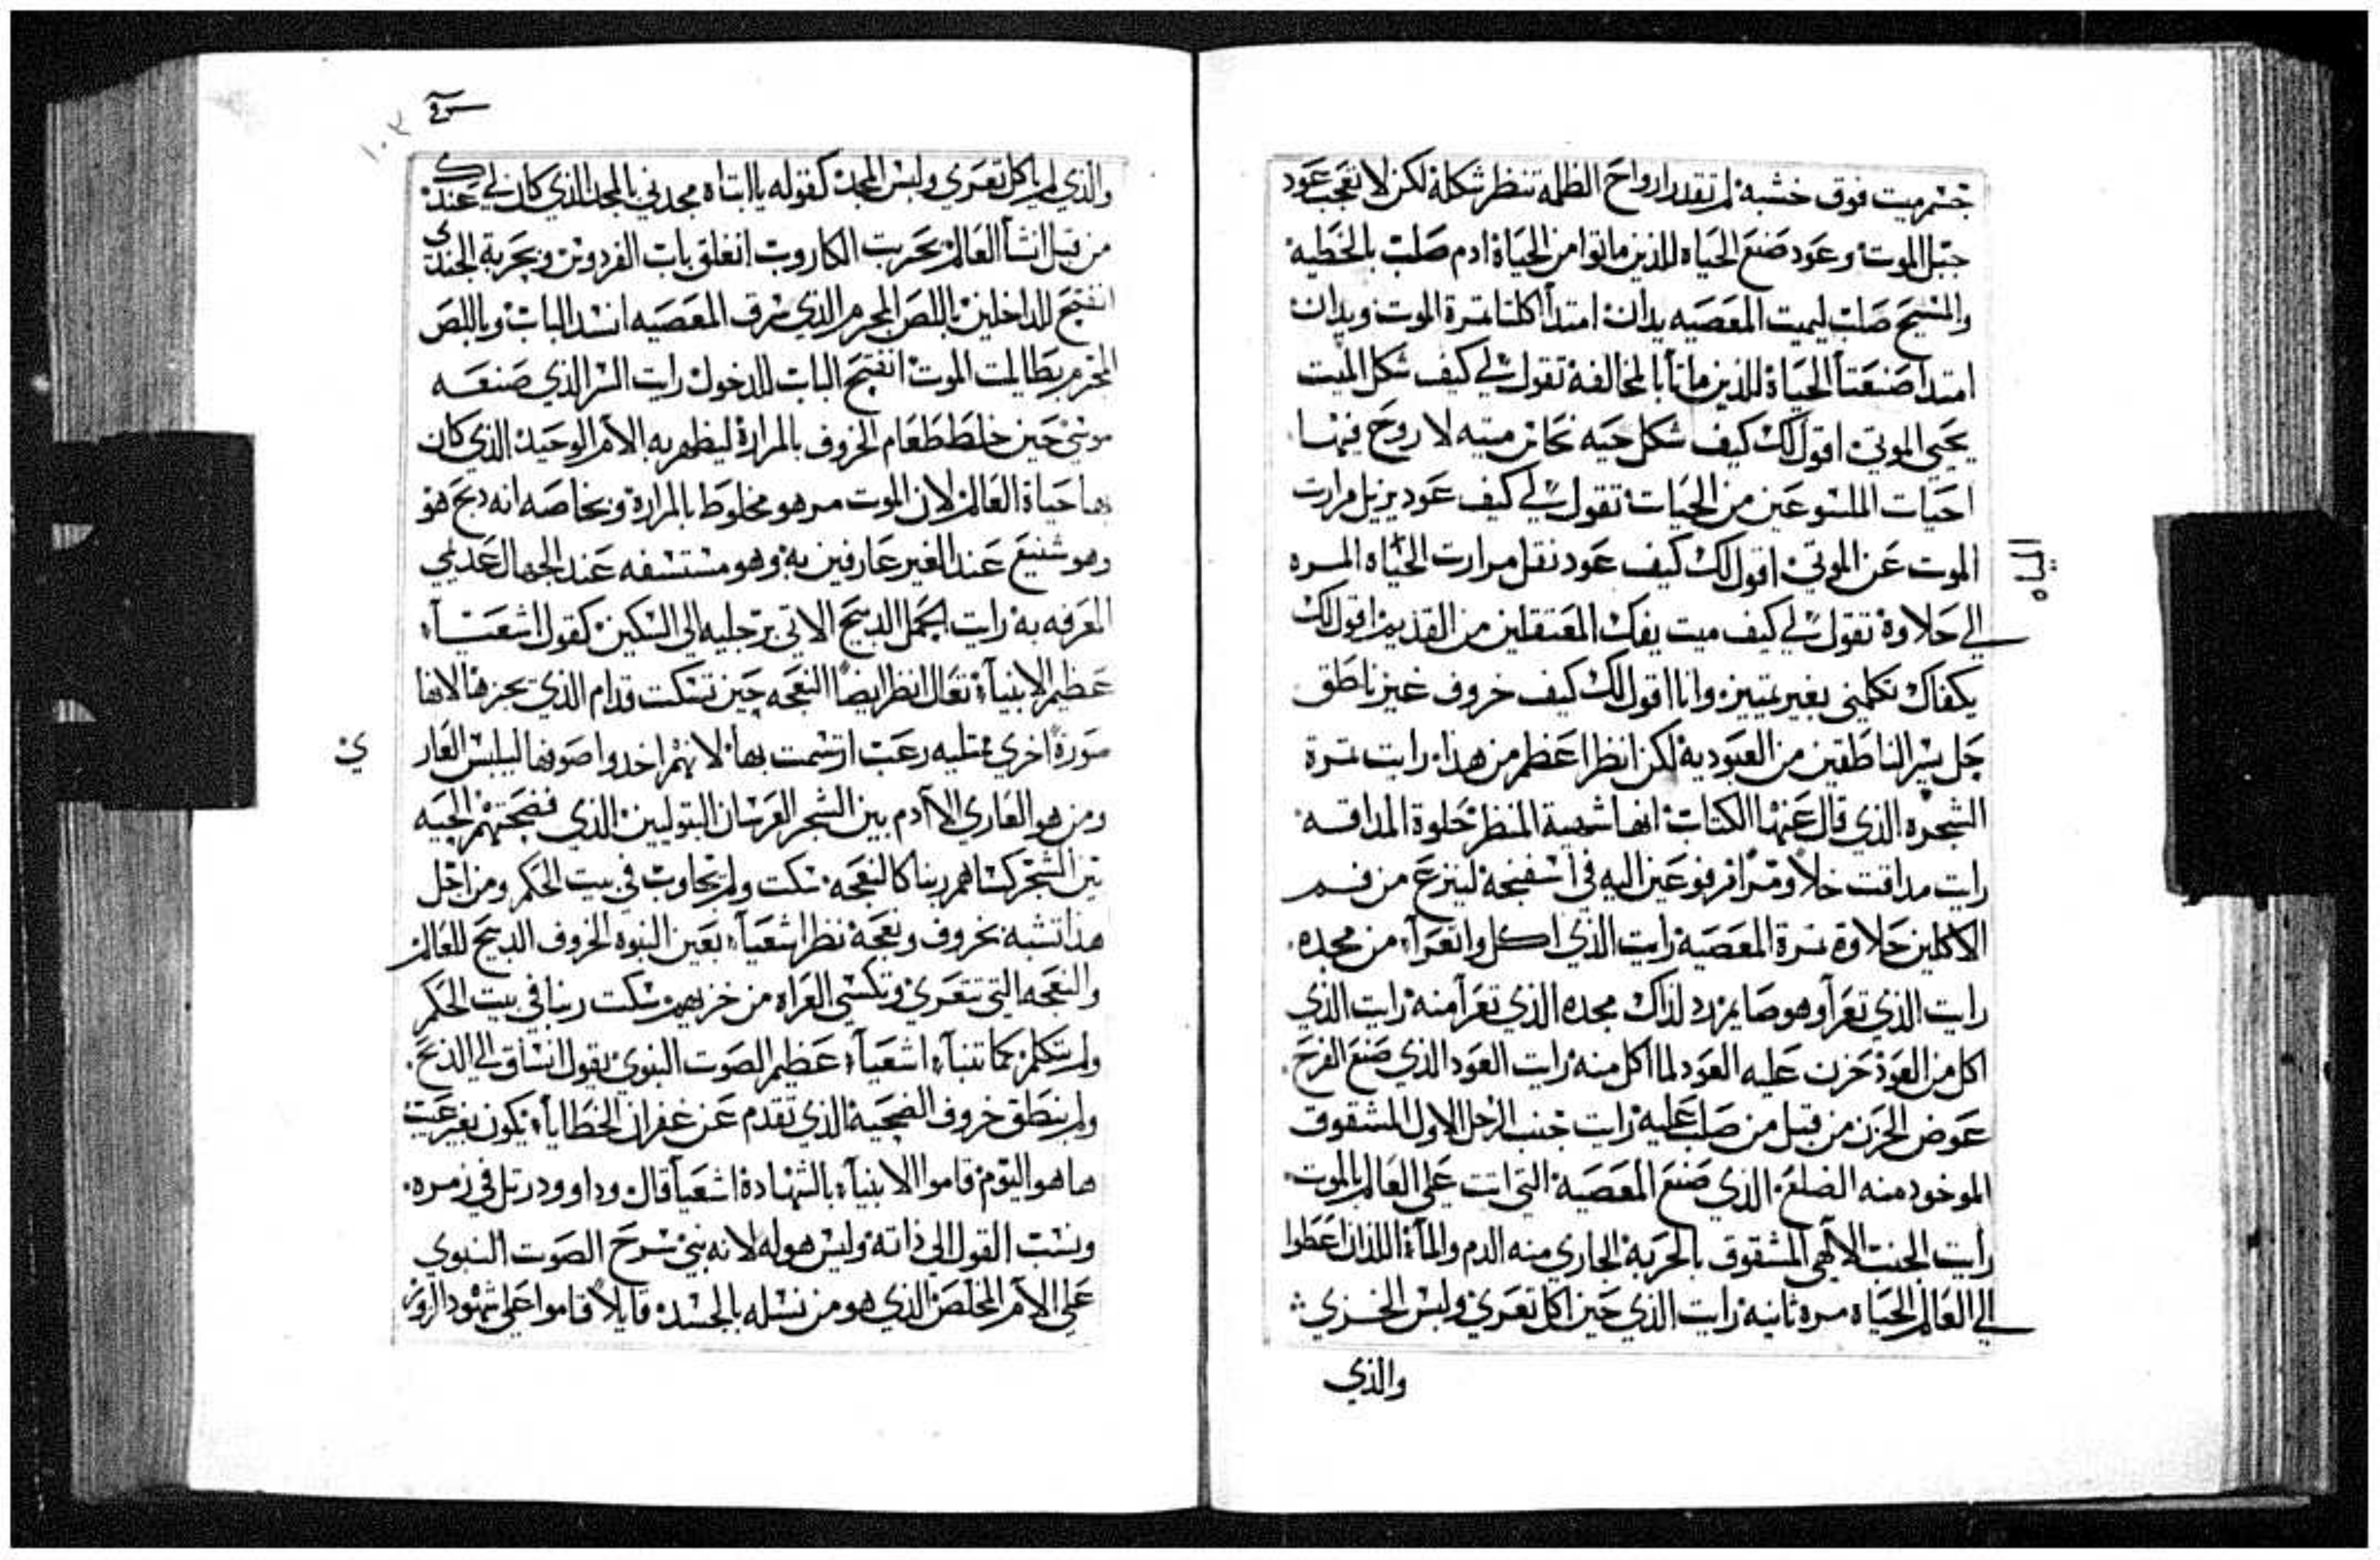 جسم ميت فوق خشبه لم تقدر ارواح الظلمة تنظر شكلة لكن لا تعجب عود
جبل الموت وعود صنع الحياه للذين ماتوا من الحياة ادم صلب بالخطيه
والمسيح صلب ليميت المعصيه يدان امتدا اكلتا تمرة الموت ويدان
امتدا صنعتا الحياة للذين ماتا بالمخالفة تقول لي كيف شكل الميت
يحيي الموتي اقول لك كيف شكل حيه نحاس ميته لا روح فيها
احيات الملسوعين من الحيات تقول لي كيف عود يزيل مرارت
الموت عن الموتي اقول لك كيف عود نقل مرارت الحياه المره
المياه
الي حلاوة تقول لي كيف ميت يفك المعتقلين من القديم اقول لك
يكفاك تكلمني بغير تمييز وانا اقول لك كيف خروف غير ناطق
حل يسر الناطقين من العبودية لكن انظر اعظم من هذا رايت تمرة
الشجره الذي قال عنها الكتاب انها شهية المنظر حلوة المداقه
رايت مداقت خلا ومرا مرفوعين اليه في اسفنجة لينزع من فم
الاكلين حلاوة تمرة المعصية رايت الذي اكل واتعرا من مجده
رايت الذي تعرا وهو صايم رد لذاك مجده الذي تعرا منه رايت الذي
اكل من العود حزن عليه العود لما اكل منه رايت العود الذي صنع الفرح
عوض الحزن من قبل من صلب عليه رايت جنب الرجل الاول المشقوق
الموخود منه الضلع الذي صنع المعصية التي اتت علي العالم بالموت
رايت الجنب الالهي المشقوق بالحربة الجاري منه الدم والماء اللذان اعطوا
الي العالم الحياه مره ثانية رايت الذي حين اكل تعري ولبس الخزي
والذي
١٠٣
والذي لم ياكل تعري ولبس المجد كقوله يا ابتاه مجدني بالمجد الذي كان لي عندك
من قبل انشا العالم بحربت الكاروب انغلق باب الفردوس وبحربة الجندي
انفتح للداخلين باللص المجرم الذي سرق المعصيه انسد الباب وباللص
المجرم بطالمت الموت انفتح الباب للدخول رايت السر الذي صنعه
موسي حين خلط طعام الخروف بالمرارة ليظهر به الالام الوحيد الذي كان
بها حياة العالم لان الموت مر هو مخلوط بالمرارة وبخاصه انه دبح هو
وهو شنيع عند الغير عارفين به وهو مستسفه عند الجهال عديمي
المعرفه به رايت الحمل الدبيح الاتي برجليه الي السكين كقول اشعيا
عظيم الانبياء تعال انظر ايضا النعجه حين تسكت قدام الذي يجزها لانها
صورة اخري ممتليه رعب ارتسمت بها لانهم اخدوا صوفها ليلبس العار
ي
ومن هو العاري الا ادم بين الشجر العرسان البتوليين الذي فضحتهم الحيه
بين الشجر كساهم ربنا كالنعجه سكت ولم يجاوب في بيت الحكم ومن اجل
هذا تشبه بخروف ونعجة نظر اشعياء بعين النبوه الخروف الدبيح للعالم
والنعجه التي تتعري وتكسي العراه من خزيهم سكت ربنا في بيت الحكم
ولم يتكلم كما تنبا اشعياء عظيم الصوت النبوي بقول انساق الي الذبح
ولم ينطق خروف الضحية الذي تقدم عن غفران الخطايا يكون بغير عيب
ها هو اليوم قاموا الانبياء بالشهادة اشعيا قال وداوود رتل في زمره
ونسب القول الي ذاتة وليس هو له لانه نبي شرح الصوت النبوي
علي الالام المخلص الذي هو من نسله بالجسد قايلا قاموا علي شهود الزور